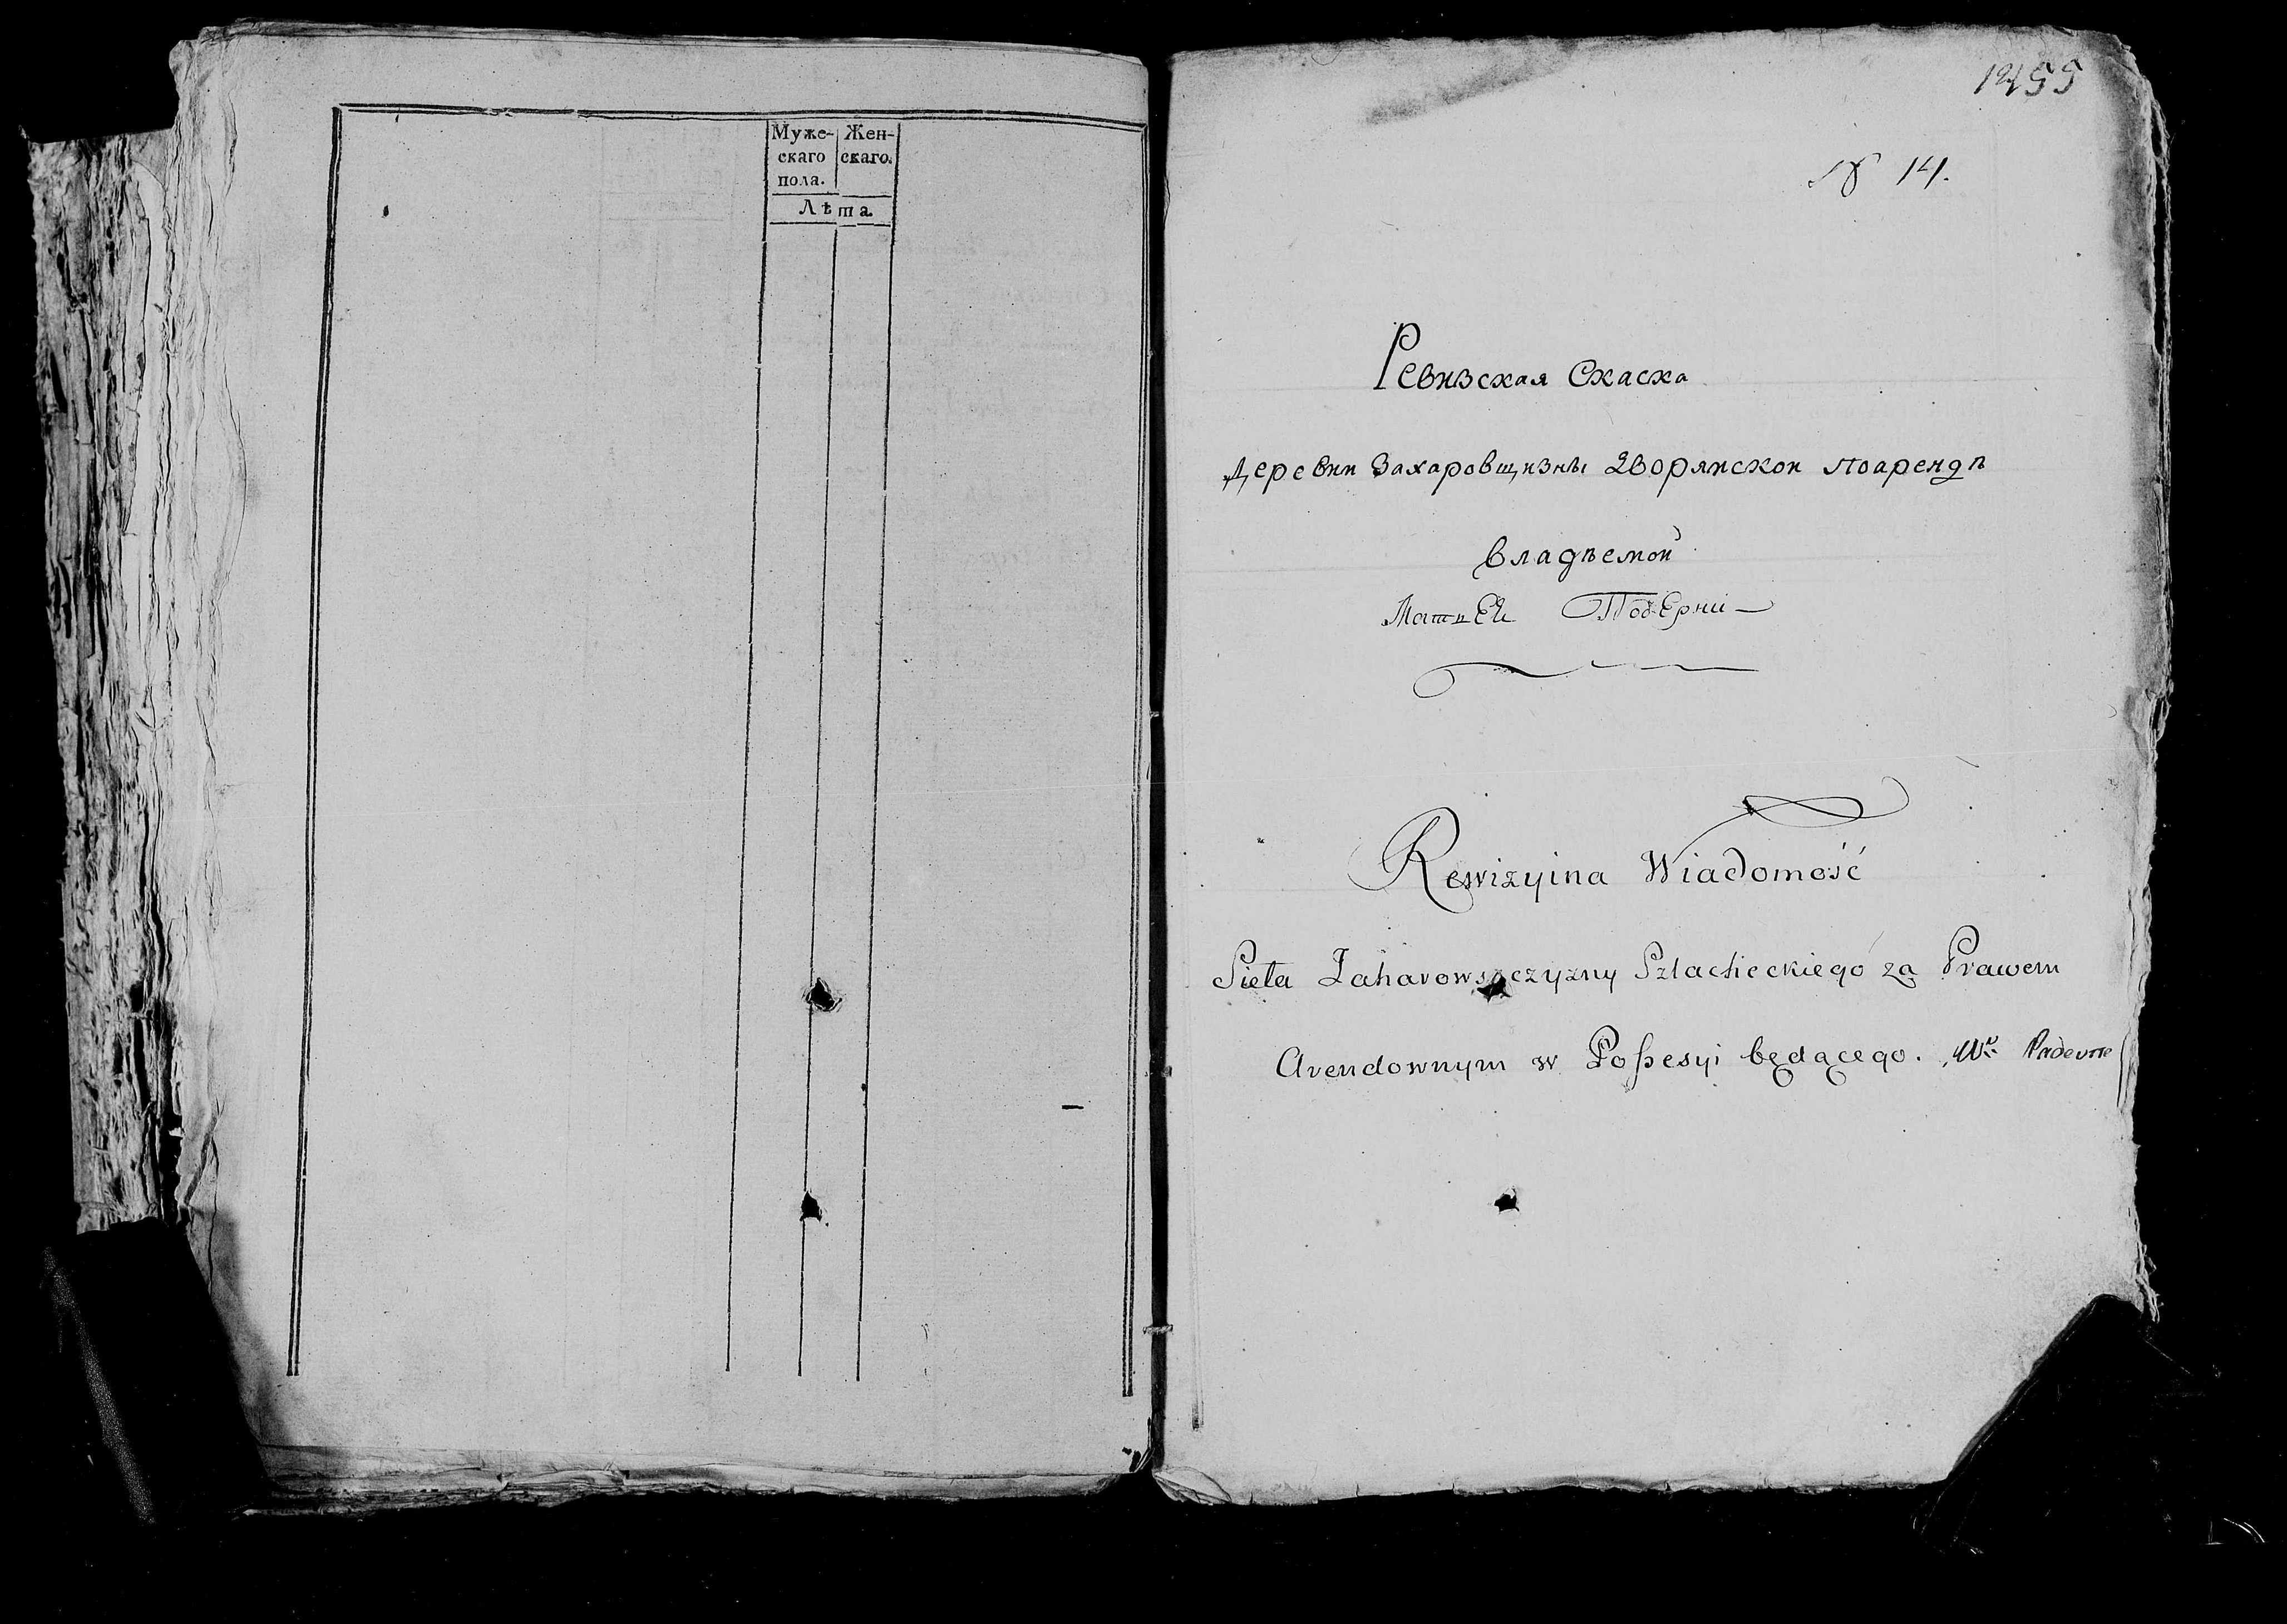 Муже- Жен-
скаго скаго.
пола.
Лѣта
1455
№ 14.
Ревизская Скаска
Деревни Захаровщизны Дворянской по арендѣ
владѣемой
Матвей
Rewizyina Wiadomość
Sieła Zaharowszczyzny Szlacheckiego za Prawem
Arendownym w Possesyi będącego.